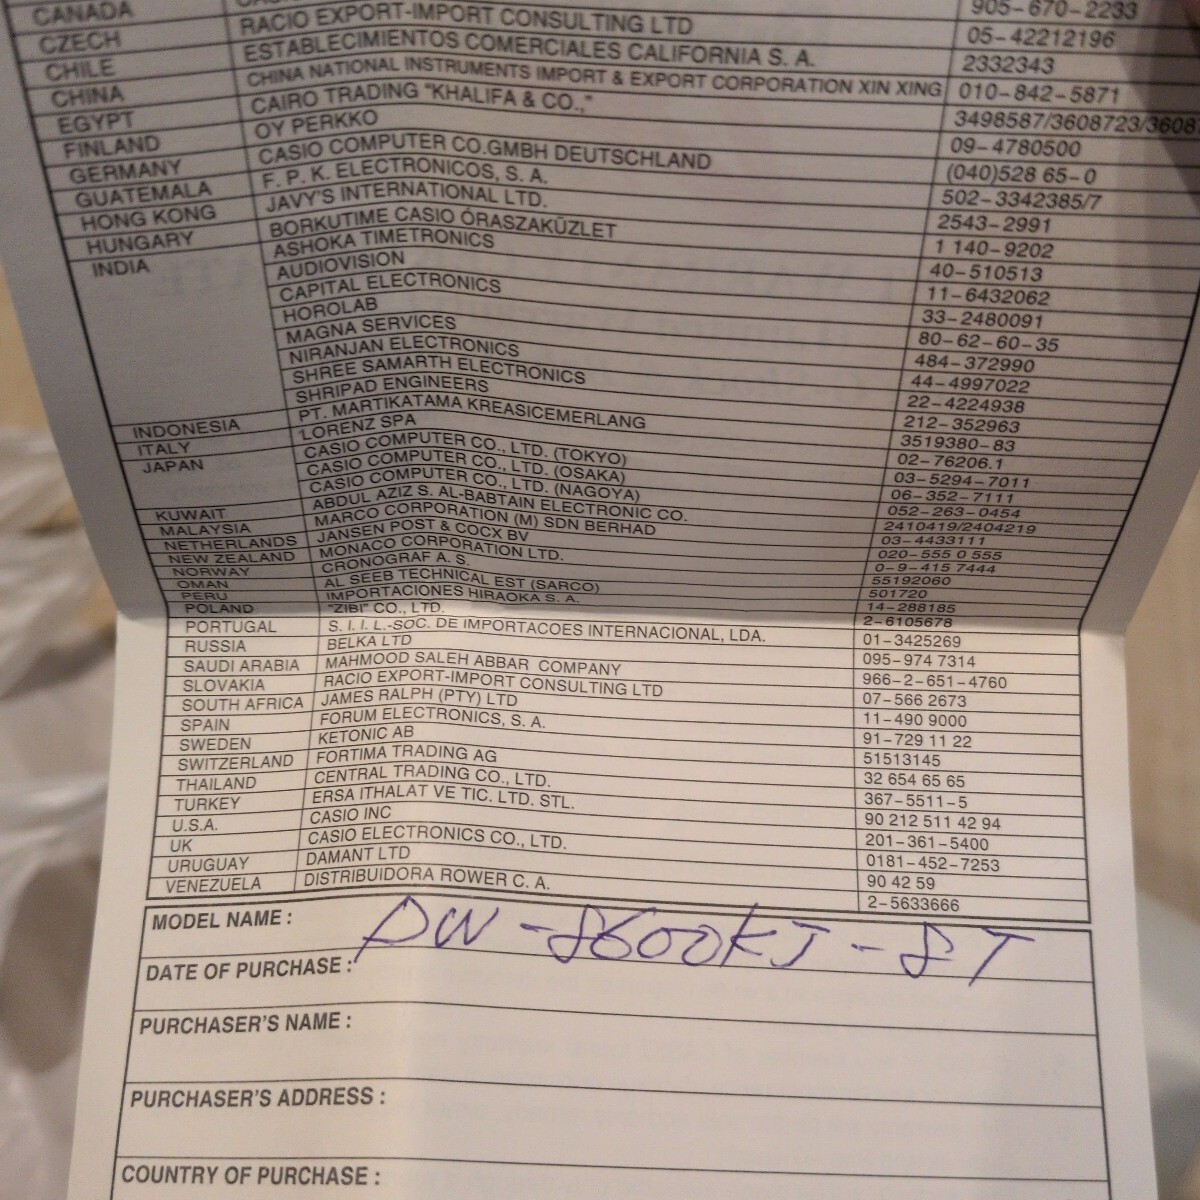 CANADA 905-670-2233
CZECH RACIO EXPORT-IMPORT CONSULTING LTD 05-42212196
CHILE ESTABLECIMIENTOS COMERCIALES CALIFORNIA S. A. 2332343
CHINA CHINA NATIONAL INSTRUMENTS IMPORT & EXPORT CORPORATION XIN XING 010-842-5871
EGYPT CAIRO TRADING "KHALIFA & CO.," 3498587/3608723/3608
FINLAND OY PERKKO 09-4780500
GERMANY CASIO COMPUTER CO.GMBH DEUTSCHLAND (040)528 65-0
GUATEMALA F. P. K. ELECTRONICOS, S. A. 502-3342385/7
HONG KONG JAVY'S INTERNATIONAL LTD. 2543-2991
HUNGARY BORKUTIME CASIO ÓRASZAKÜZLET 1 140-9202
INDIA ASHOKA TIMETRONICS 40-510513
AUDIOVISION 11-6432062
CAPITAL ELECTRONICS 33-2480091
HOROLAB 80-62-60-35
MAGNA SERVICES 484-372990
NIRANJAN ELECTRONICS 44-4997022
SHREE SAMARTH ELECTRONICS 22-4224938
SHRIPAD ENGINEERS 212-352963
INDONESIA PT. MARTIKATAMA KREASICEMERLANG 3519380-83
ITALY LORENZ SPA 02-76206.1
JAPAN CASIO COMPUTER CO., LTD. (TOKYO) 03-5294-7011
CASIO COMPUTER CO., LTD. (OSAKA) 06-352-7111
CASIO COMPUTER CO., LTD. (NAGOYA) 052-263-0454
KUWAIT ABDUL AZIZ S. AL-BABTAIN ELECTRONIC CO. 2410419/2404219
MALAYSIA MARCO CORPORATION (M) SDN BERHAD 03-4433111
NETHERLANDS JANSEN POST & COCX BV 020-555 0 555
NEW ZEALAND MONACO CORPORATION LTD. 0-9-415 7444
NORWAY CRONOGRAF A. S. 55192060
OMAN AL SEEB TECHNICAL EST (SARCO) 501720
PERU IMPORTACIONES HIRAOKA S. A. 14-288185
POLAND "ZIBI" CO., LTD. 2-6105678
PORTUGAL S. I. I. L.-SOC. DE IMPORTACOES INTERNACIONAL, LDA. 01-3425269
RUSSIA BELKA LTD 095-974 7314
SAUDI ARABIA MAHMOOD SALEH ABBAR COMPANY 966-2-651-4760
SLOVAKIA RACIO EXPORT-IMPORT CONSULTING LTD 07-566 2673
SOUTH AFRICA JAMES RALPH (PTY) LTD 11-490 9000
SPAIN FORUM ELECTRONICS, S. A. 91-729 11 22
SWEDEN KETONIC AB 51513145
SWITZERLAND FORTIMA TRADING AG 32 654 65 65
THAILAND CENTRAL TRADING CO., LTD. 367-5511-5
TURKEY ERSA ITHALAT VE TIC. LTD. STL. 90 212 511 42 94
U.S.A. CASIO INC 201-361-5400
UK CASIO ELECTRONICS CO., LTD. 0181-452-7253
URUGUAY DAMANT LTD 90 42 59
VENEZUELA DISTRIBUIDORA ROWER C. A. 2-5633666
MODEL NAME : DW-8600KJ-8T
DATE OF PURCHASE :
PURCHASER'S NAME :
PURCHASER'S ADDRESS :
COUNTRY OF PURCHASE :